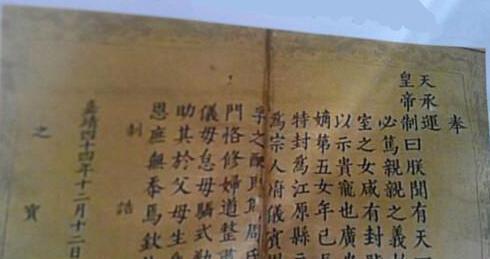 奉
天承運
皇帝制曰朕聞有天
必篤親親之義
室之女咸有封
以示貴寵也廣
嫡第五女年已
特封爲江原縣
爲宗人府儀賓
孚之配則爲周氏
門恪修婦道整
儀毋怠毋驕式
助其於父母生
恩庶無忝焉欽
制誥
嘉靖四十四年十二月十二日
之寶